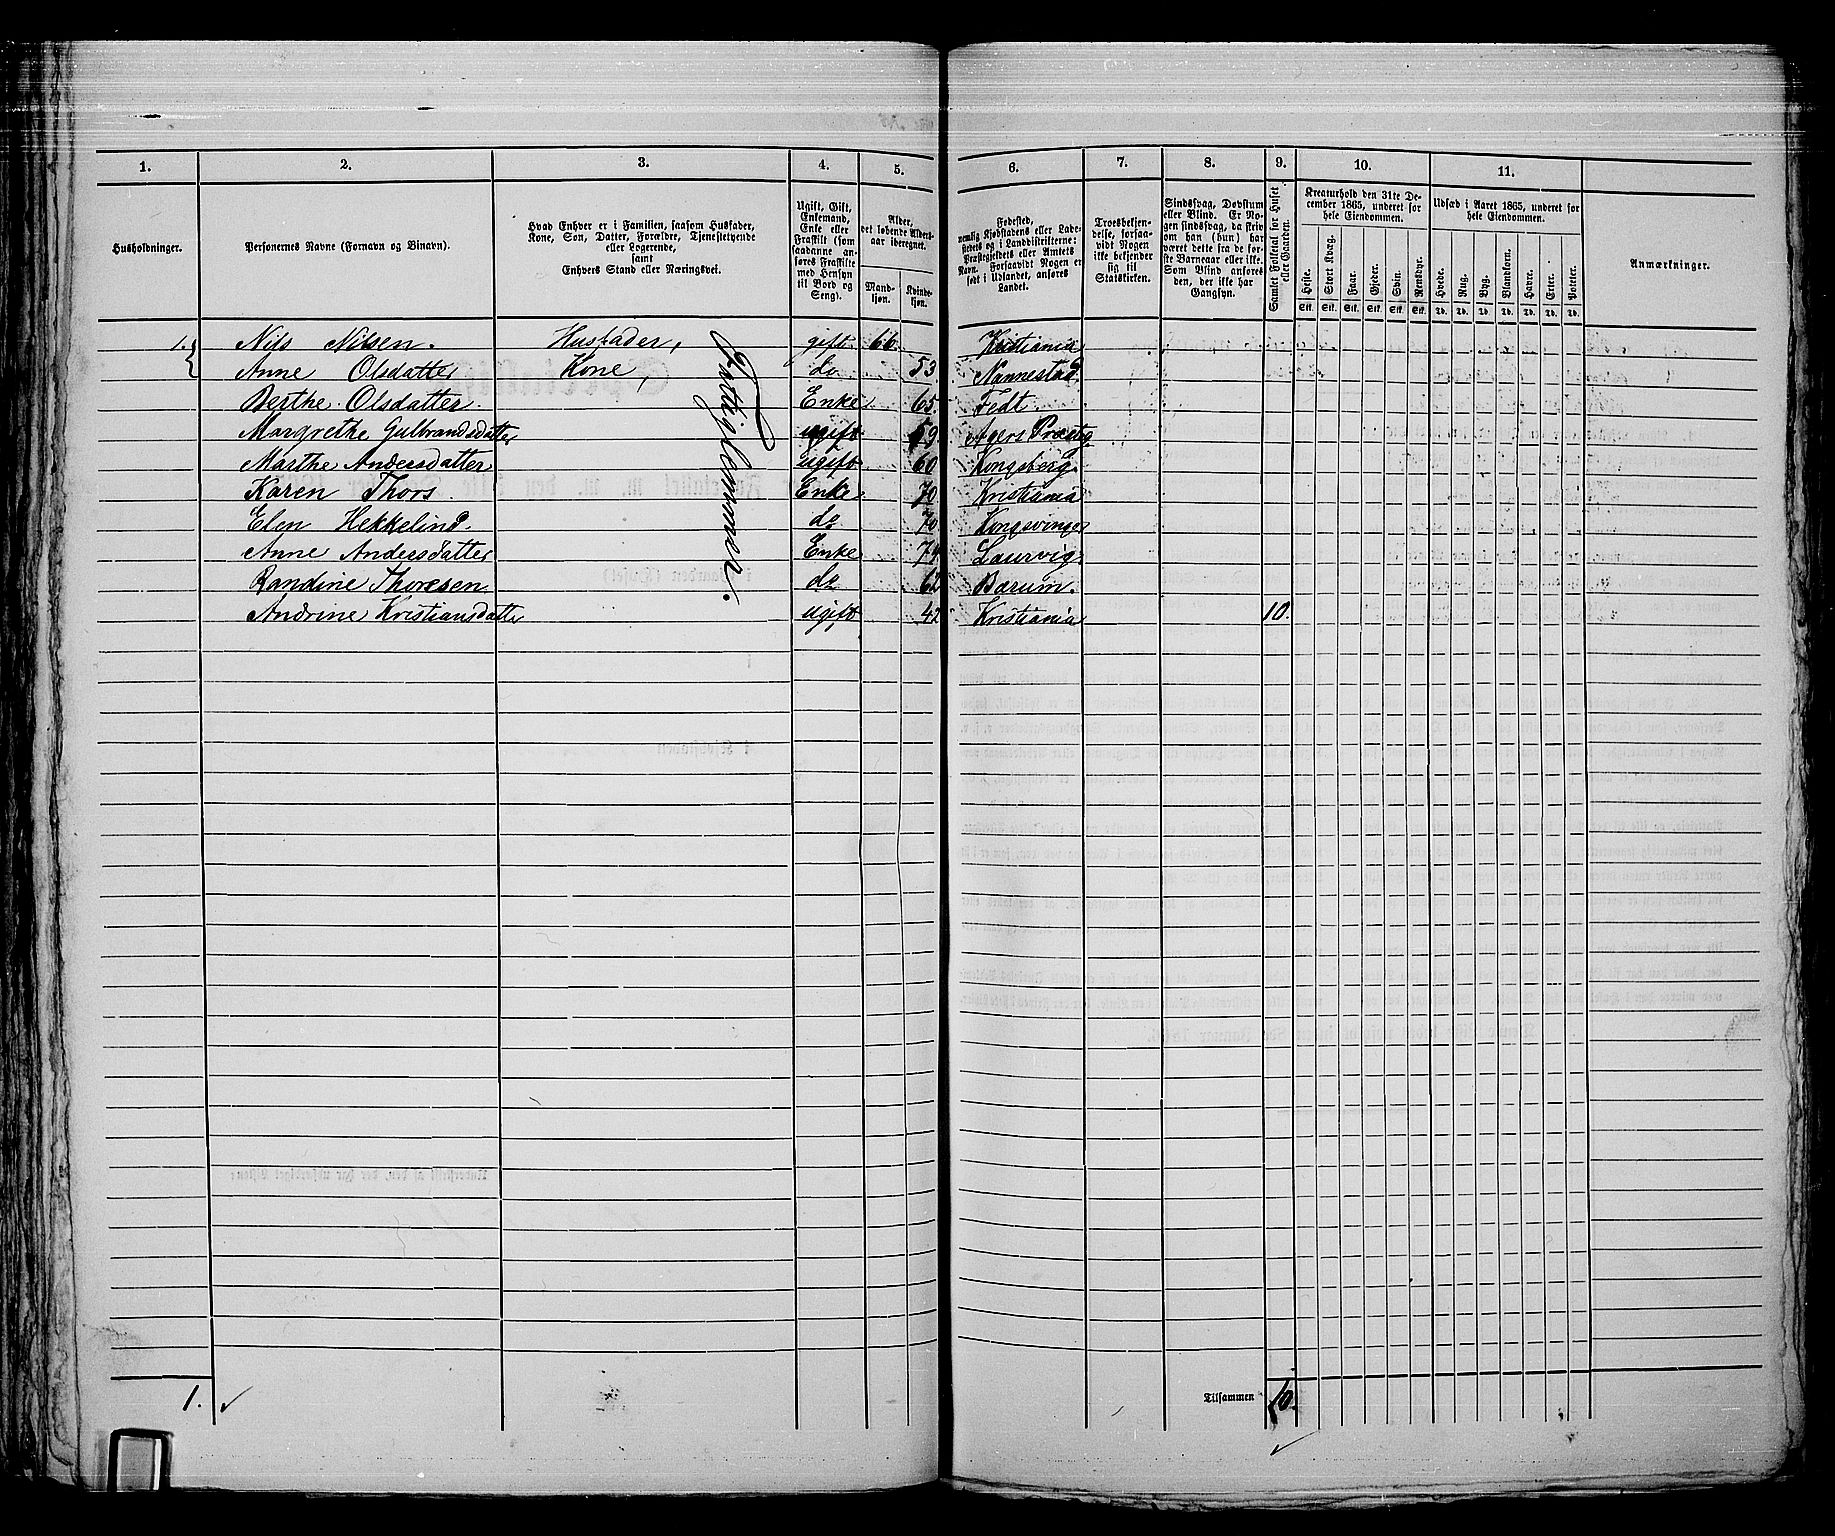 1. 2. 3. 4. 5. 6. 7. 8. 9. 10. 11.
Husholdninger.
Personernes Navne (Fornavn og Binavn).
Hvad Enhver er i Familien, saasom Husfader,
Kone, Søn, Datter, Forældre, Tjenestetyende
eller Logerende,
samt
Enhvers Stand eller Næringsvei.
Ugift, Gift,
Enkemand,
Enke eller
Fraskilt (som
saadanne an-
føres Fraskilte
med Hensyn
til Bord og
Seng).
Alder,
det løbende Alders-
aar iberegnet.
Mand-
kjøn.
Kvinde-
kjøn.
Fødested,
nemlig Kjøbstadens eller Lade-
stedets og i Landdistrikterne:
Præstegjeldets eller Amtets
Navn. Forsaavidt Nogen er
født i Udlandet, anføres
Landet.
Troesbekjen-
delse, forsaa-
vidt Nogen
ikke bekjender
sig til
Statskirken.
Sindssvag, Døvstum
eller Blind. Er No-
gen sindssvag, da skriv
om han (hun) har
været dette fra de før-
ste Barneaar eller ikke.
Som Blind anføres
den, der ikke har
Gangsyn.
Samlet Folketal for Huset
eller Gaarden.
Kreaturhold den 31te De-
cember 1865, underet for
hele Eiendommen.
Heste. Stort Kvæg. Faar. Gjeder. Svin. Rensdyr.
Stk. Stk. Stk. Stk. Stk. Stk.
Udsæd i Aaret 1865, underet for
hele Eiendommen.
Hvede. Rug. Byg. Blandkorn. Havre. Erter. Poteter.
Td. Td. Td. Td. Td. Td. Td.
Anmærkninger.
1. Nils Nilsen. Husfader, gift 66 Kristiania
Anne Olsdatter Kone, do 53 Nannestad.
Berthe Olsdatter. Enke 65. Fedt.
Margrethe Gulbrandsdatter ugift 59. Agers Præstg.
Marthe Andersdatter ugift 60 Kongsberg.
Karen Thors. Enke 70. Kristiania
Elen Hekkelind. do 70. Kongsvinger
Anne Andersdatter Enke 74 Laurvig.
Randine Thoresen. do 62 Bærum.
Andrine Kristiansdatter ugift 42 Kristiania 10.
Fattiglemmer.
1. Tilsammen 10.